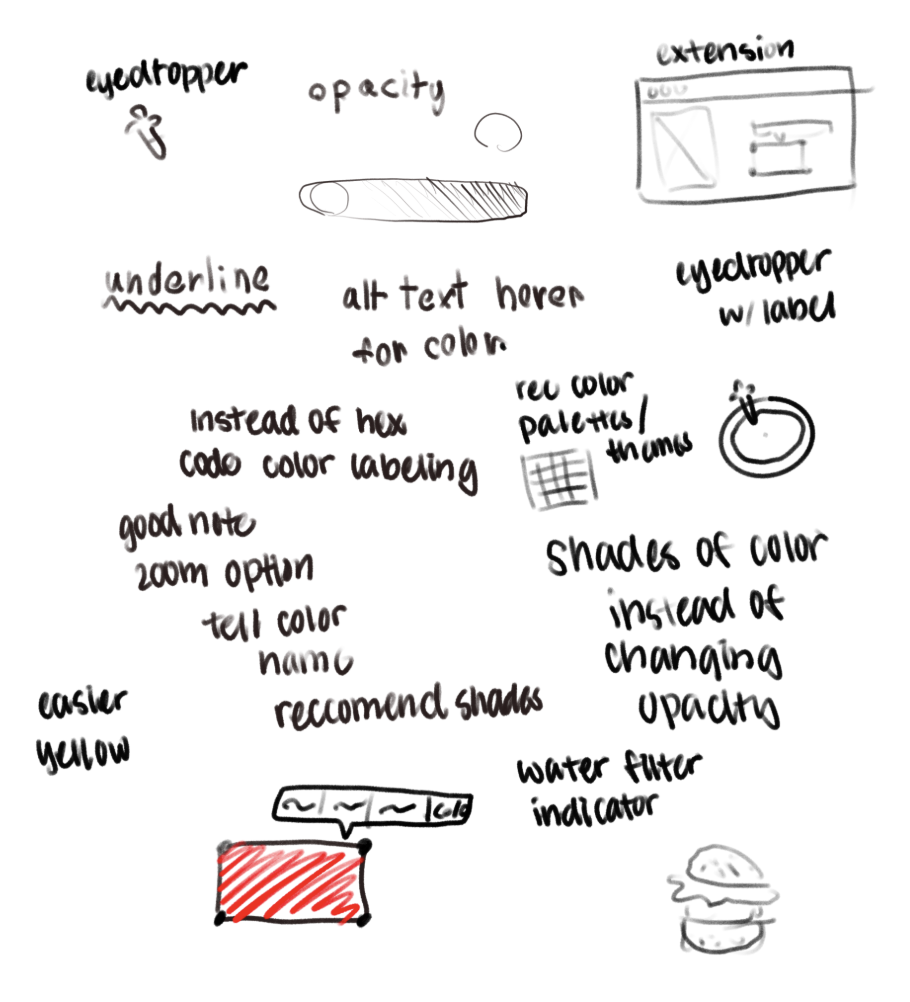 eyedropper
opacity
extension
underline
alt text hover
for color
eyedropper
w/ label
instead of hex
code color labeling
rec color
palettes/
themes
good note
zoom option
tell color
name
reccomend shades
shades of color
instead of
changing
opacity
easier
yellow
water filter
indicator